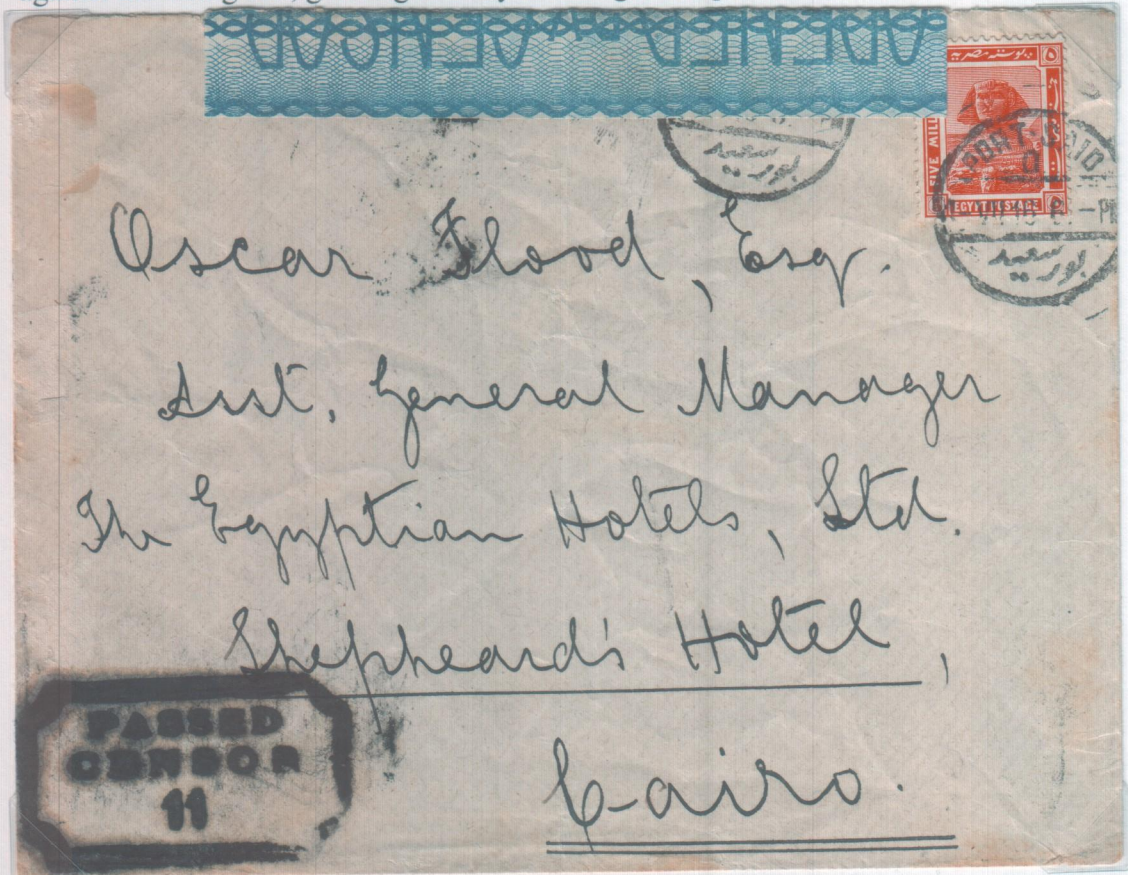 OPENED BY CENSOR
بوسته مصرية
FIVE MILL
EGYPT POSTAGE
PORT-SAID
PM
بور سعيد
بور سعيد
Oscar Flood, Esq.
Asst. General Manager
The Egyptian Hotels, Ltd.
Shepheard's Hotel,
Cairo.
PASSED
CENSOR
11